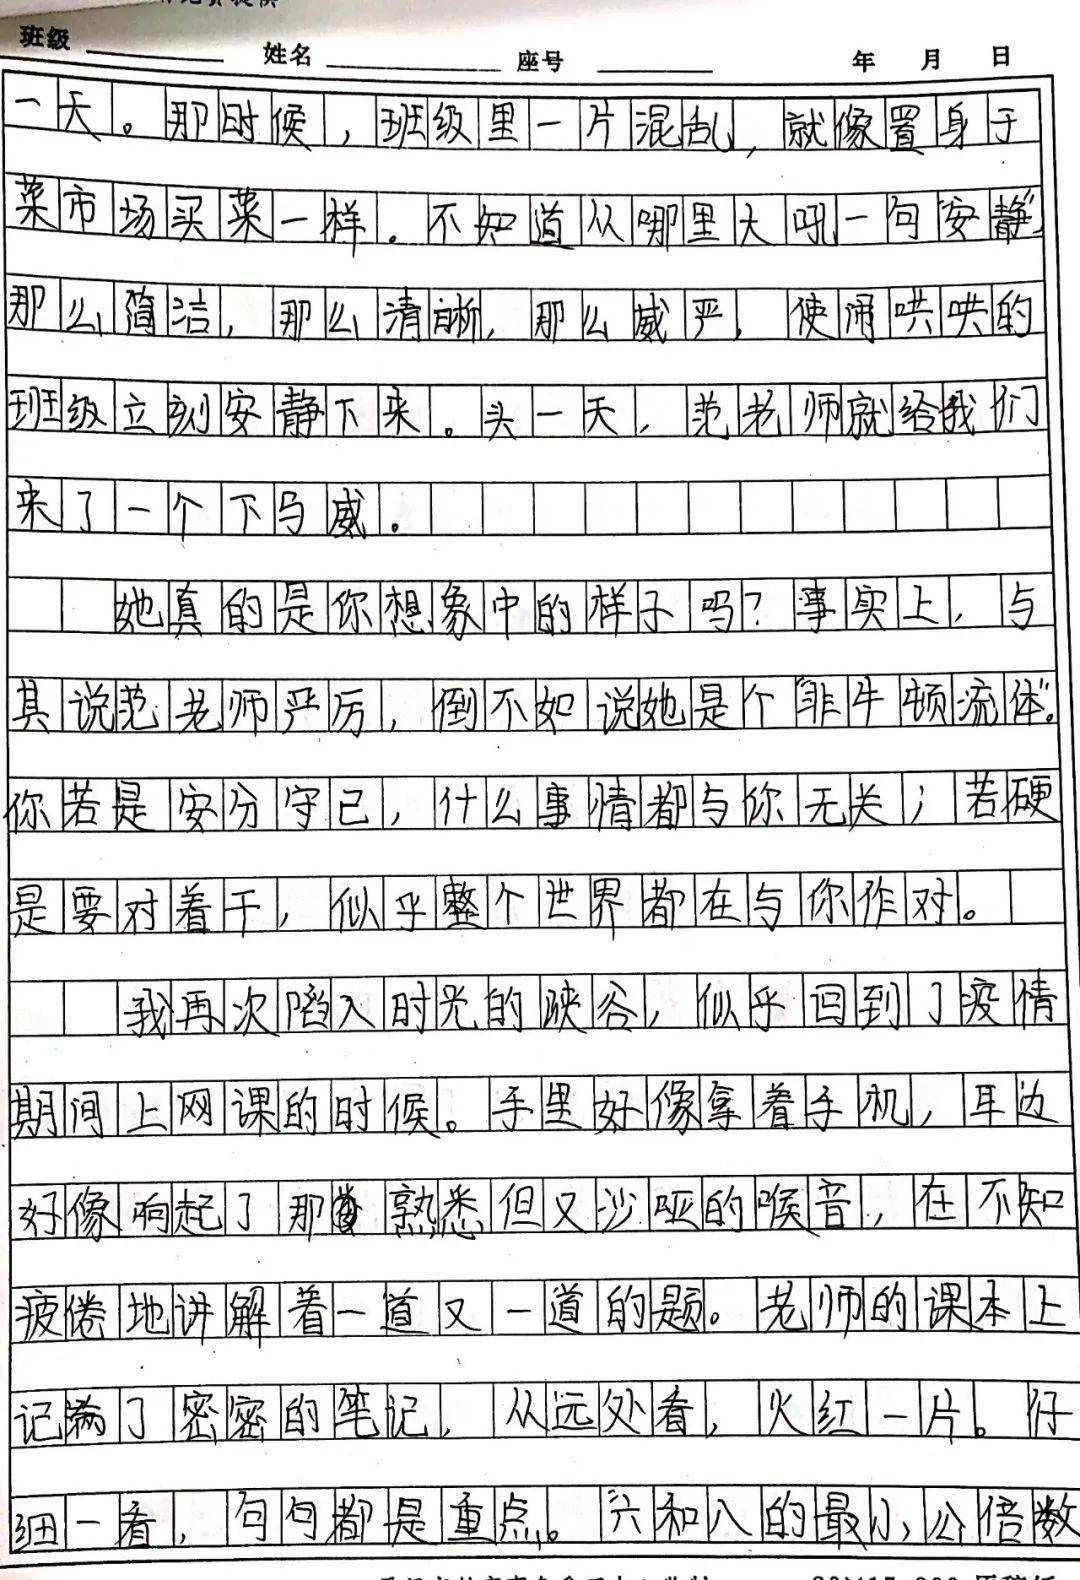 班级 姓名 座号 年 月 日
一天。那时候，班级里一片混乱，就像置身于
菜市场买菜一样。不知道从哪里大吼一句“安静”，
那么简洁，那么清晰，那么威严，使闹哄哄的
班级立刻安静下来。头一天，范老师就给我们
来了一个下马威。
她真的是你想象中的样子吗？事实上，与
其说范老师严厉，倒不如说她是个“非牛顿流体”。
你若是安分守己，什么事情都与你无关；若硬
是要对着干，似乎整个世界都在与你作对。
我再次陷入时光的峡谷，似乎回到了疫情
期间上网课的时候。手里好像拿着手机，耳边
好像响起了那熟悉但又沙哑的喉音，在不知
疲倦地讲解着一道又一道的题。老师的课本上
记满了密密的笔记，从远处看，火红一片。仔
细一看，句句都是重点。“六和八的最小公倍数